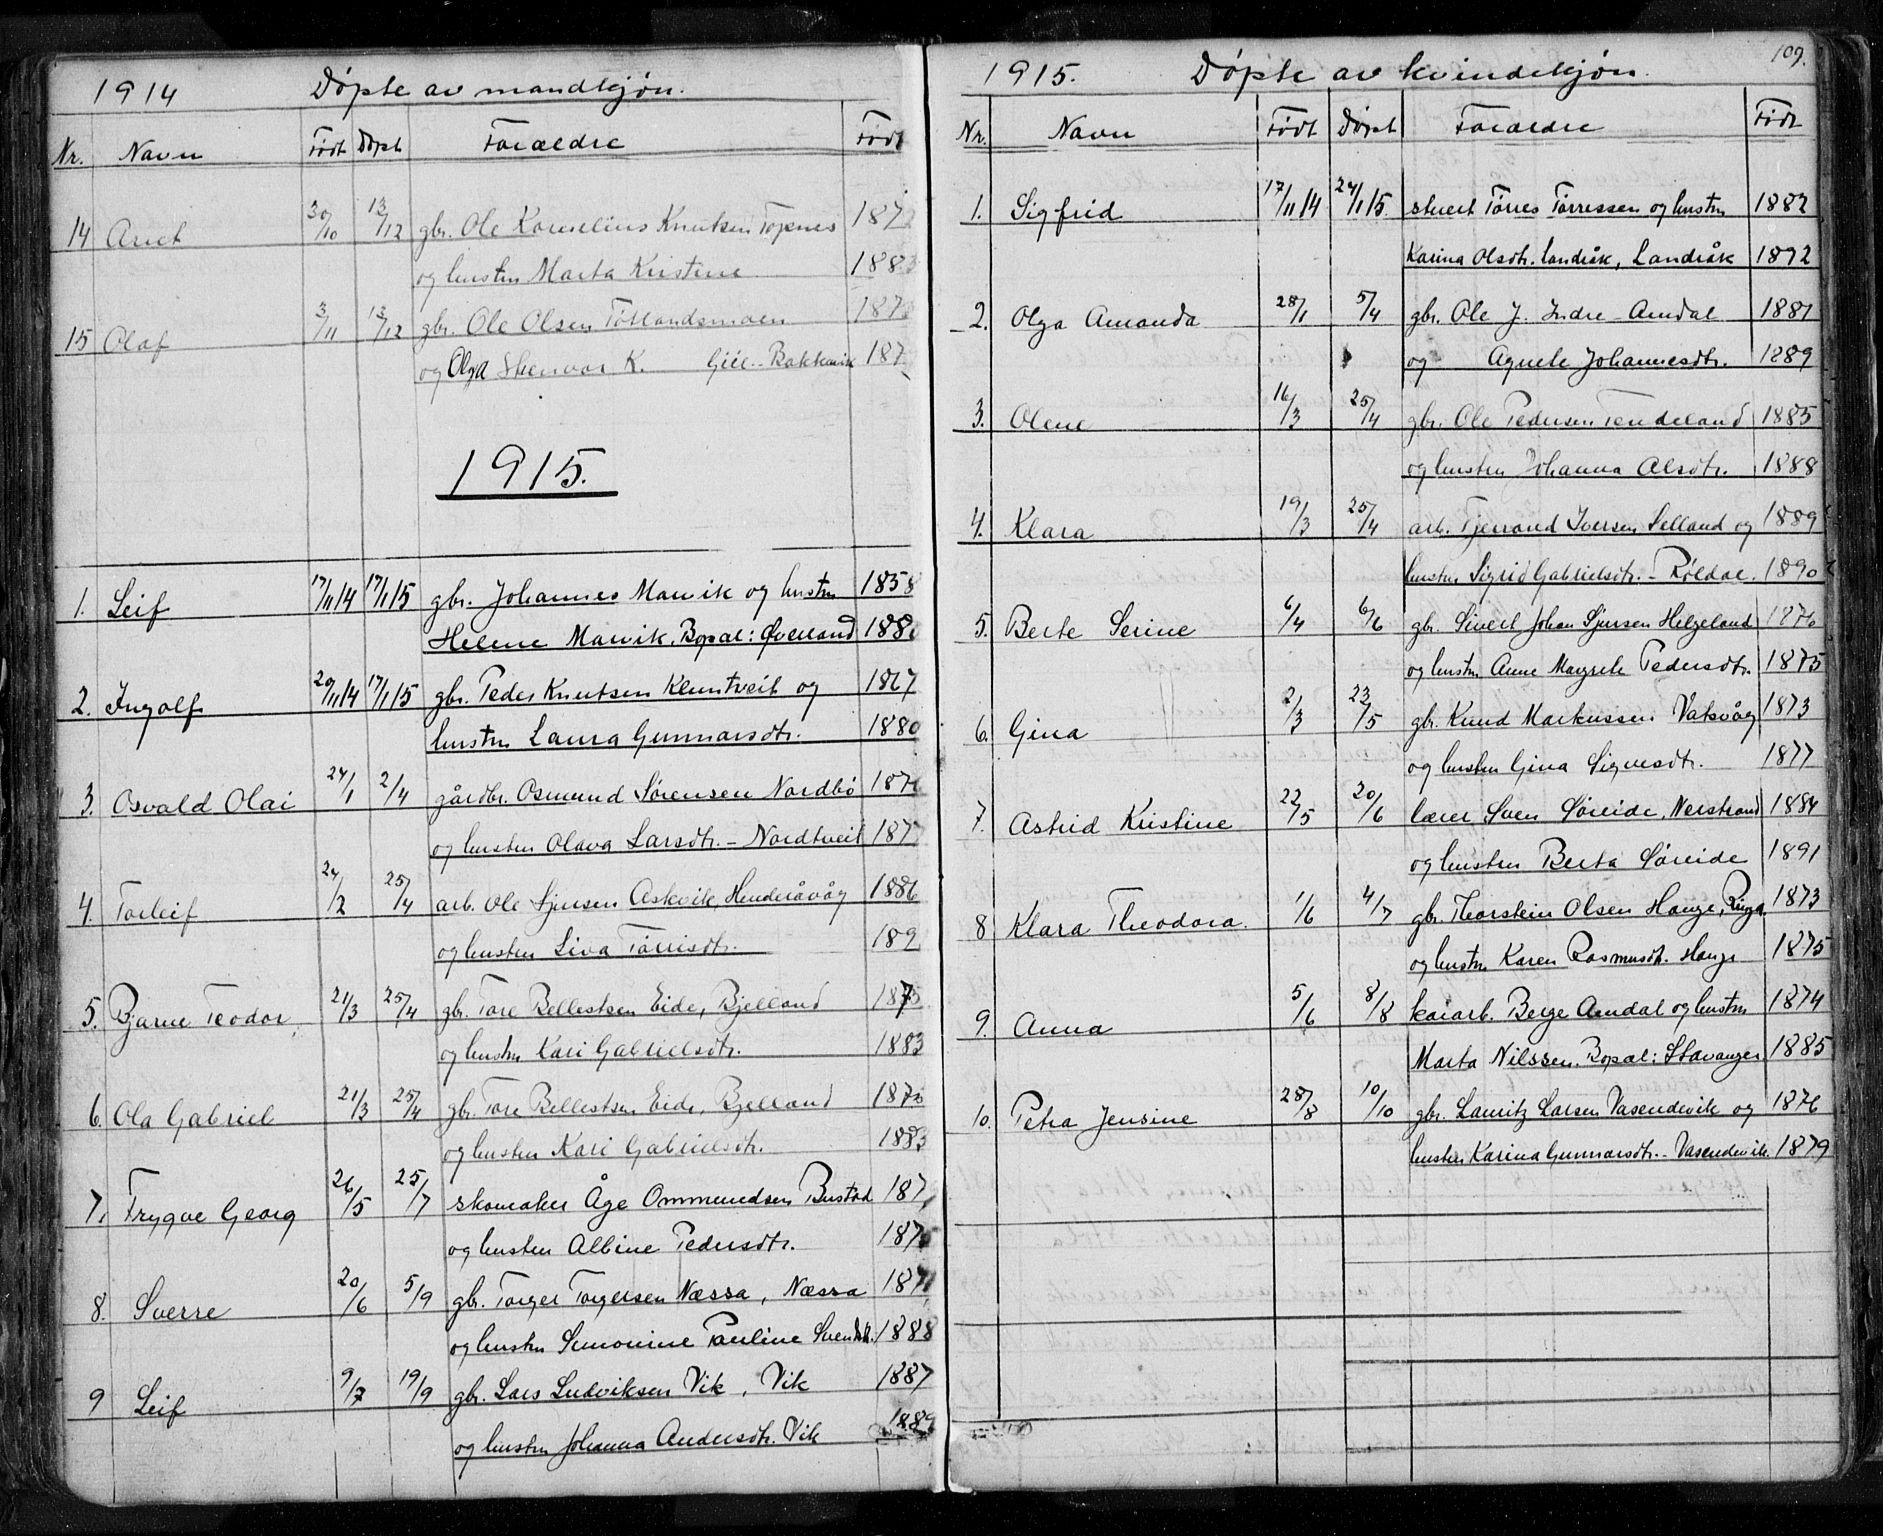 1914 Døpte av mandkjøn.
Nr. Navn Født Døpt Forældre Født
14 Arict 30/10 13/12 gbr. Ole Kornelius Knutsen Topnes
og hustru Marta Kristine 1883
15 Olaf 3/11 13/12 gbr. Ole Olsen Totlandsmoen
og Olga Steinvor K.
1915.
1. Leif 17/11 14 17/1 15 gbr. Johannes Marvik og hustru 1858
Helene Marvik. Bopæl: Øverland
2. Ingolf 20/11 14 17/1 15 gbr. Peder Knutsen Kluntveit og 1867
hustru Laura Gunnarsdtr. 1880
3. Osvald Olai 24/1 2/4 gårdbr. Osmund Sørensen Nordbø
og hustru Olava Larsdtr. - Nordtveit
4. Torleif 24/2 25/4 arb. Ole Sjursen Askvik, Henderåvåg 1886
og hustru Liva Tørrisdtr. 189
5. Bjarne Teodor, 21/3 25/4 gbr. Tore Bellestsen Eide, Bjelland
og hustru Kari Gabrielsdtr. 1883
6. Ola Gabriel 21/3 25/4 gbr. Tore Bellestsen Eide, Bjelland
og hustru Kari Gabrielsdtr. 1883
7. Trygve Georg 26/5 25/7 skomaker Åge Ommundsen Bustad 187
og hustru Albine Pedersdtr.
8. Sverre 20/6 5/9 gbr. Torger Torgersen Næssa, Næssa
og hustru Simonine Pauline Svendsdtr. 1888
9 Leif 9/7 19/9 gbr. Lars Ludviksen Vik, Vik 1887
og hustru Johanna Andersdtr. Vik 1889
109.
1915. Døpte av kvindekjøn.
Nr. Navn Født Døpt Forældre Født
1. Sigfrid 17/11 14 24/1 15. stuert Tørres Tørressen og hustru 1882
Karina Olsdtr. Landråk, Landråk 1892
2. Olga Amanda 28/1 5/4 gbr. Ole J. Indre-Amdal 1881
og Agnete Johannesdtr. 1889
3. Olene 16/3 25/4 gbr. Ole Pedersen Tendeland 1885
og hustru Johanna Olsdtr. 1888
4. Klara 19/3 25/4 arb. Tjerrand Iversen Selland og 1889
hustru Sigrid Gabrielsdtr. - Røldal. 1890
5. Berte Serine 6/4 6/6 gbr. Sivert Johan Sjursen Helgeland 1876
og hustru Anne Margrete Pedersdtr. 1875
6. Gina 2/3 23/5 gbr. Knud Markussen Vatsvåg 1873
og hustru Gina Sigvesdtr. 1877
7. Astrid Kristine 22/5 20/6 lærer Sven Søreide, Nerstrand 1884
og hustru Berta Søreide 1891
8 Klara Theodora. 1/6 4/7 gbr. Thorstein Olsen Hauge, 1873
og hustru Karen Rasmusdtr. Hauge 1875
9. Anna 5/6 8/8 kaiarb. Berge Amdal og hustru 1874
Marta Nilssen. Bopæl: Stavanger 1885
10. Petra Jensine 28/8 10/10 gbr. Lauritz Larsen Vasendevik og 1876
hustru Karina Gunnarsdtr. - Vasendevik. 1879